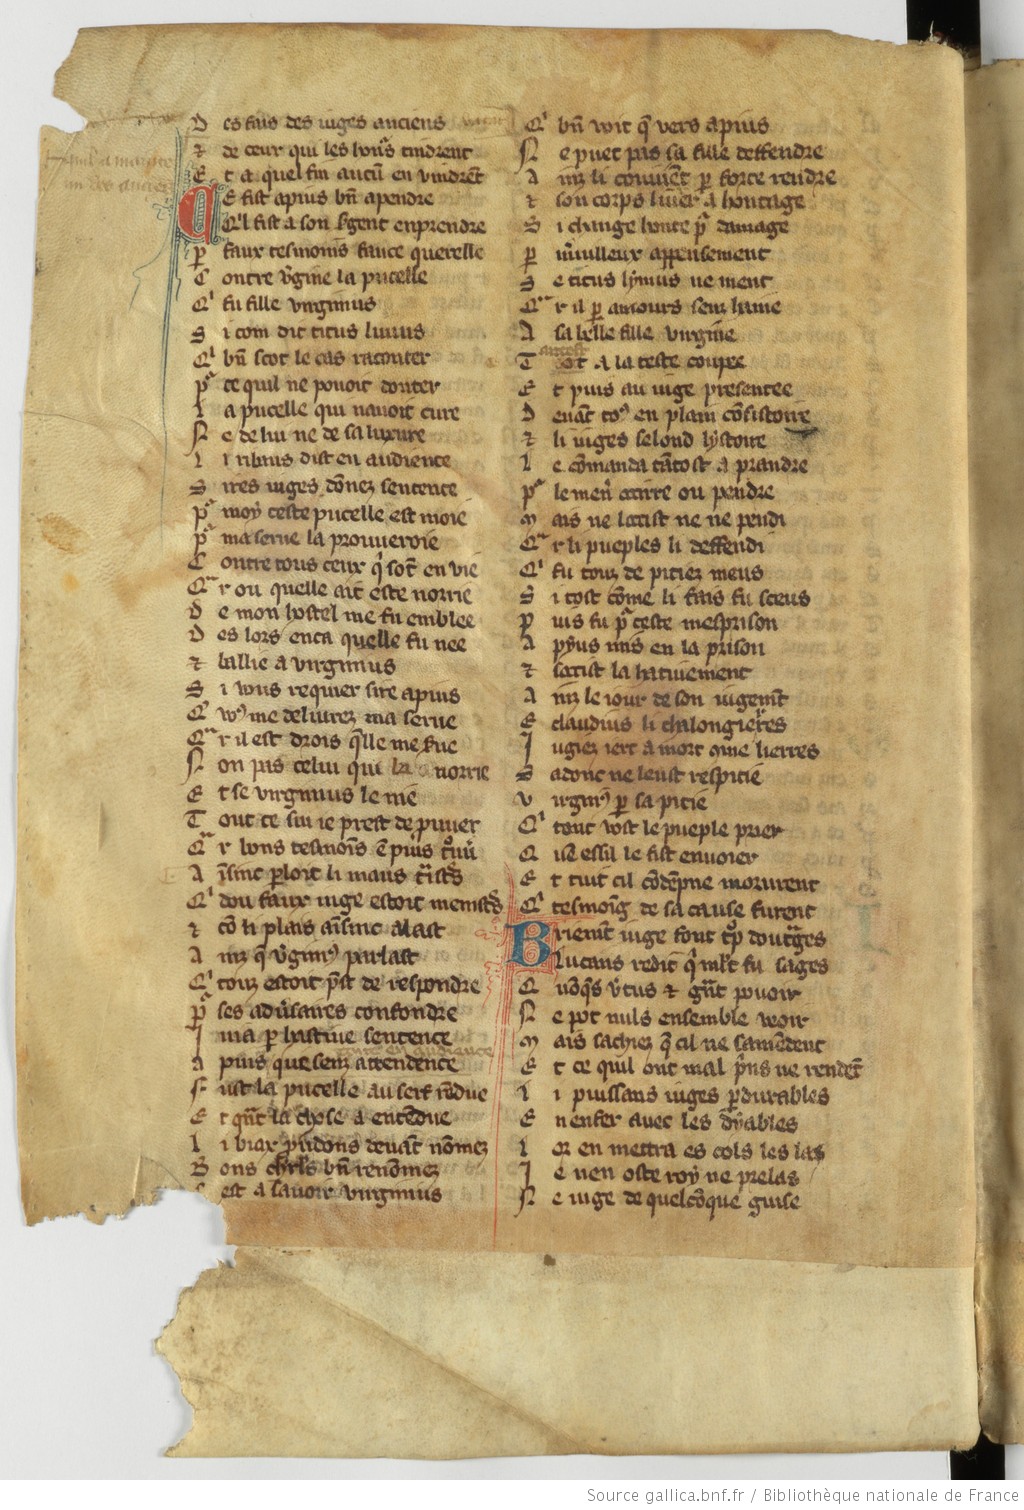 D es fais des iuges anciens
⁊ de ceur qui les bon᷒s tindrent
E t a quel fin aucū en vindrēt
Q E fist apius bn̄ apendre
Q'l fist a son s̄gent enprendre
P faux tesmoins fauce querelle
C ontre v̄gine la pucelle
Q' fu fille virginius
S i com dit titus liuius
Q' bn̄ scot le cas raconter
Pᵃ ce quil ne pouoit donter
L a pucelle qui nauoit cure
N e de lui ne de sa luxure
L i ribaus dist en audience
S ires iuges dōnez sentence
Pᵃ moy ceste pucelle est moie
Pᵃ ma serue la prouueroie
C ontre tous ceux q' sōt en vie
Qᵃ r ou quelle ait este norrie
D e mon hostel me fu emblee
D es lors enca quelle fu nee
⁊ baillie a virginius
S i vous requier sire apius
Q' vo᷒ me deliurez ma serue
Qᵃ r il est drois q̄lle me serue
N on pas celui qui la norrie
E t se virginius le nie
T out ce sui ie prest de prouuer
Qᵃ r bons tesmoīs ē puis
A īsinc ꝑloit li maus
Q' dou faux iuge estoit
⁊ cō li plais aīsinc alast
A inz q̄ v̄gini᷒ parlast
Q' touz estoit p̄st de respondre
Pᵃ ses adūsaires confondre
I uia ꝑ hastiue sentence
A pius que senz attendence
F ust la pucelle au serf rēdue
E t qn̄t la chose a entēdue
L i biax preudons deuāt nōmez
B ons chrl's bn̄ renōmez
C est a sauoir virginius
Q' bn̄ voit q̄ vers apius
N e puet pas sa fille deffendre
A inz li conuiēt ꝑ force rendre
⁊ son corps liurer a hontage
S i change honte pᵃ damage
P merueilleux appensement
S e titus lyuius ne ment
Qᵃ r il ꝑ amours senz haine
A sa belle fille virgine
T antost a la teste coupee
E t puis au iuge presentee
D euāt to᷒ en plain cōsistoire
⁊ li iuges selond lystoire
L e cōmanda tātost a prandre
Pᵃ le men̄ occirre ou pendre
M ais ne loccist ne ne pendi
Qᵃ r li pueples li deffendi
Q' fu touz de pitiez meus
S i tost cōme li fais fu sceus
P uis fu pᵃ ceste mesprison
A pyus mis en la prison
⁊ soccist la hatiuement
A inz le iour de son iugemēt
E claudius li chalongierres
I ugiez iert a mort cōme lierres
S adonc ne leust respitie
V irgini᷒ ꝑ sa pitie
Q' tout vost le pueple prier
Q uen essil le fist enuoier
E t tuit cil cōdēpne morurent
Q' tesmoing de sa cause furent
B riemēt iuge font trop doutrages
Lucans redit q' mlt fu sages
Q vn̄q̄s v̄tus ⁊ gn̄t pouoir
N e pot nuls ensemble veoir
M ais sachez q̄ cil ne samēdent
E t ce quil ont mal pris ne rendēt
L i puissans iuges ꝑdurables
E n enfer auec les dyables
L or en mettra es cols les las
I e nen oste roy ne prelas
N e iuge de quelcōque guise